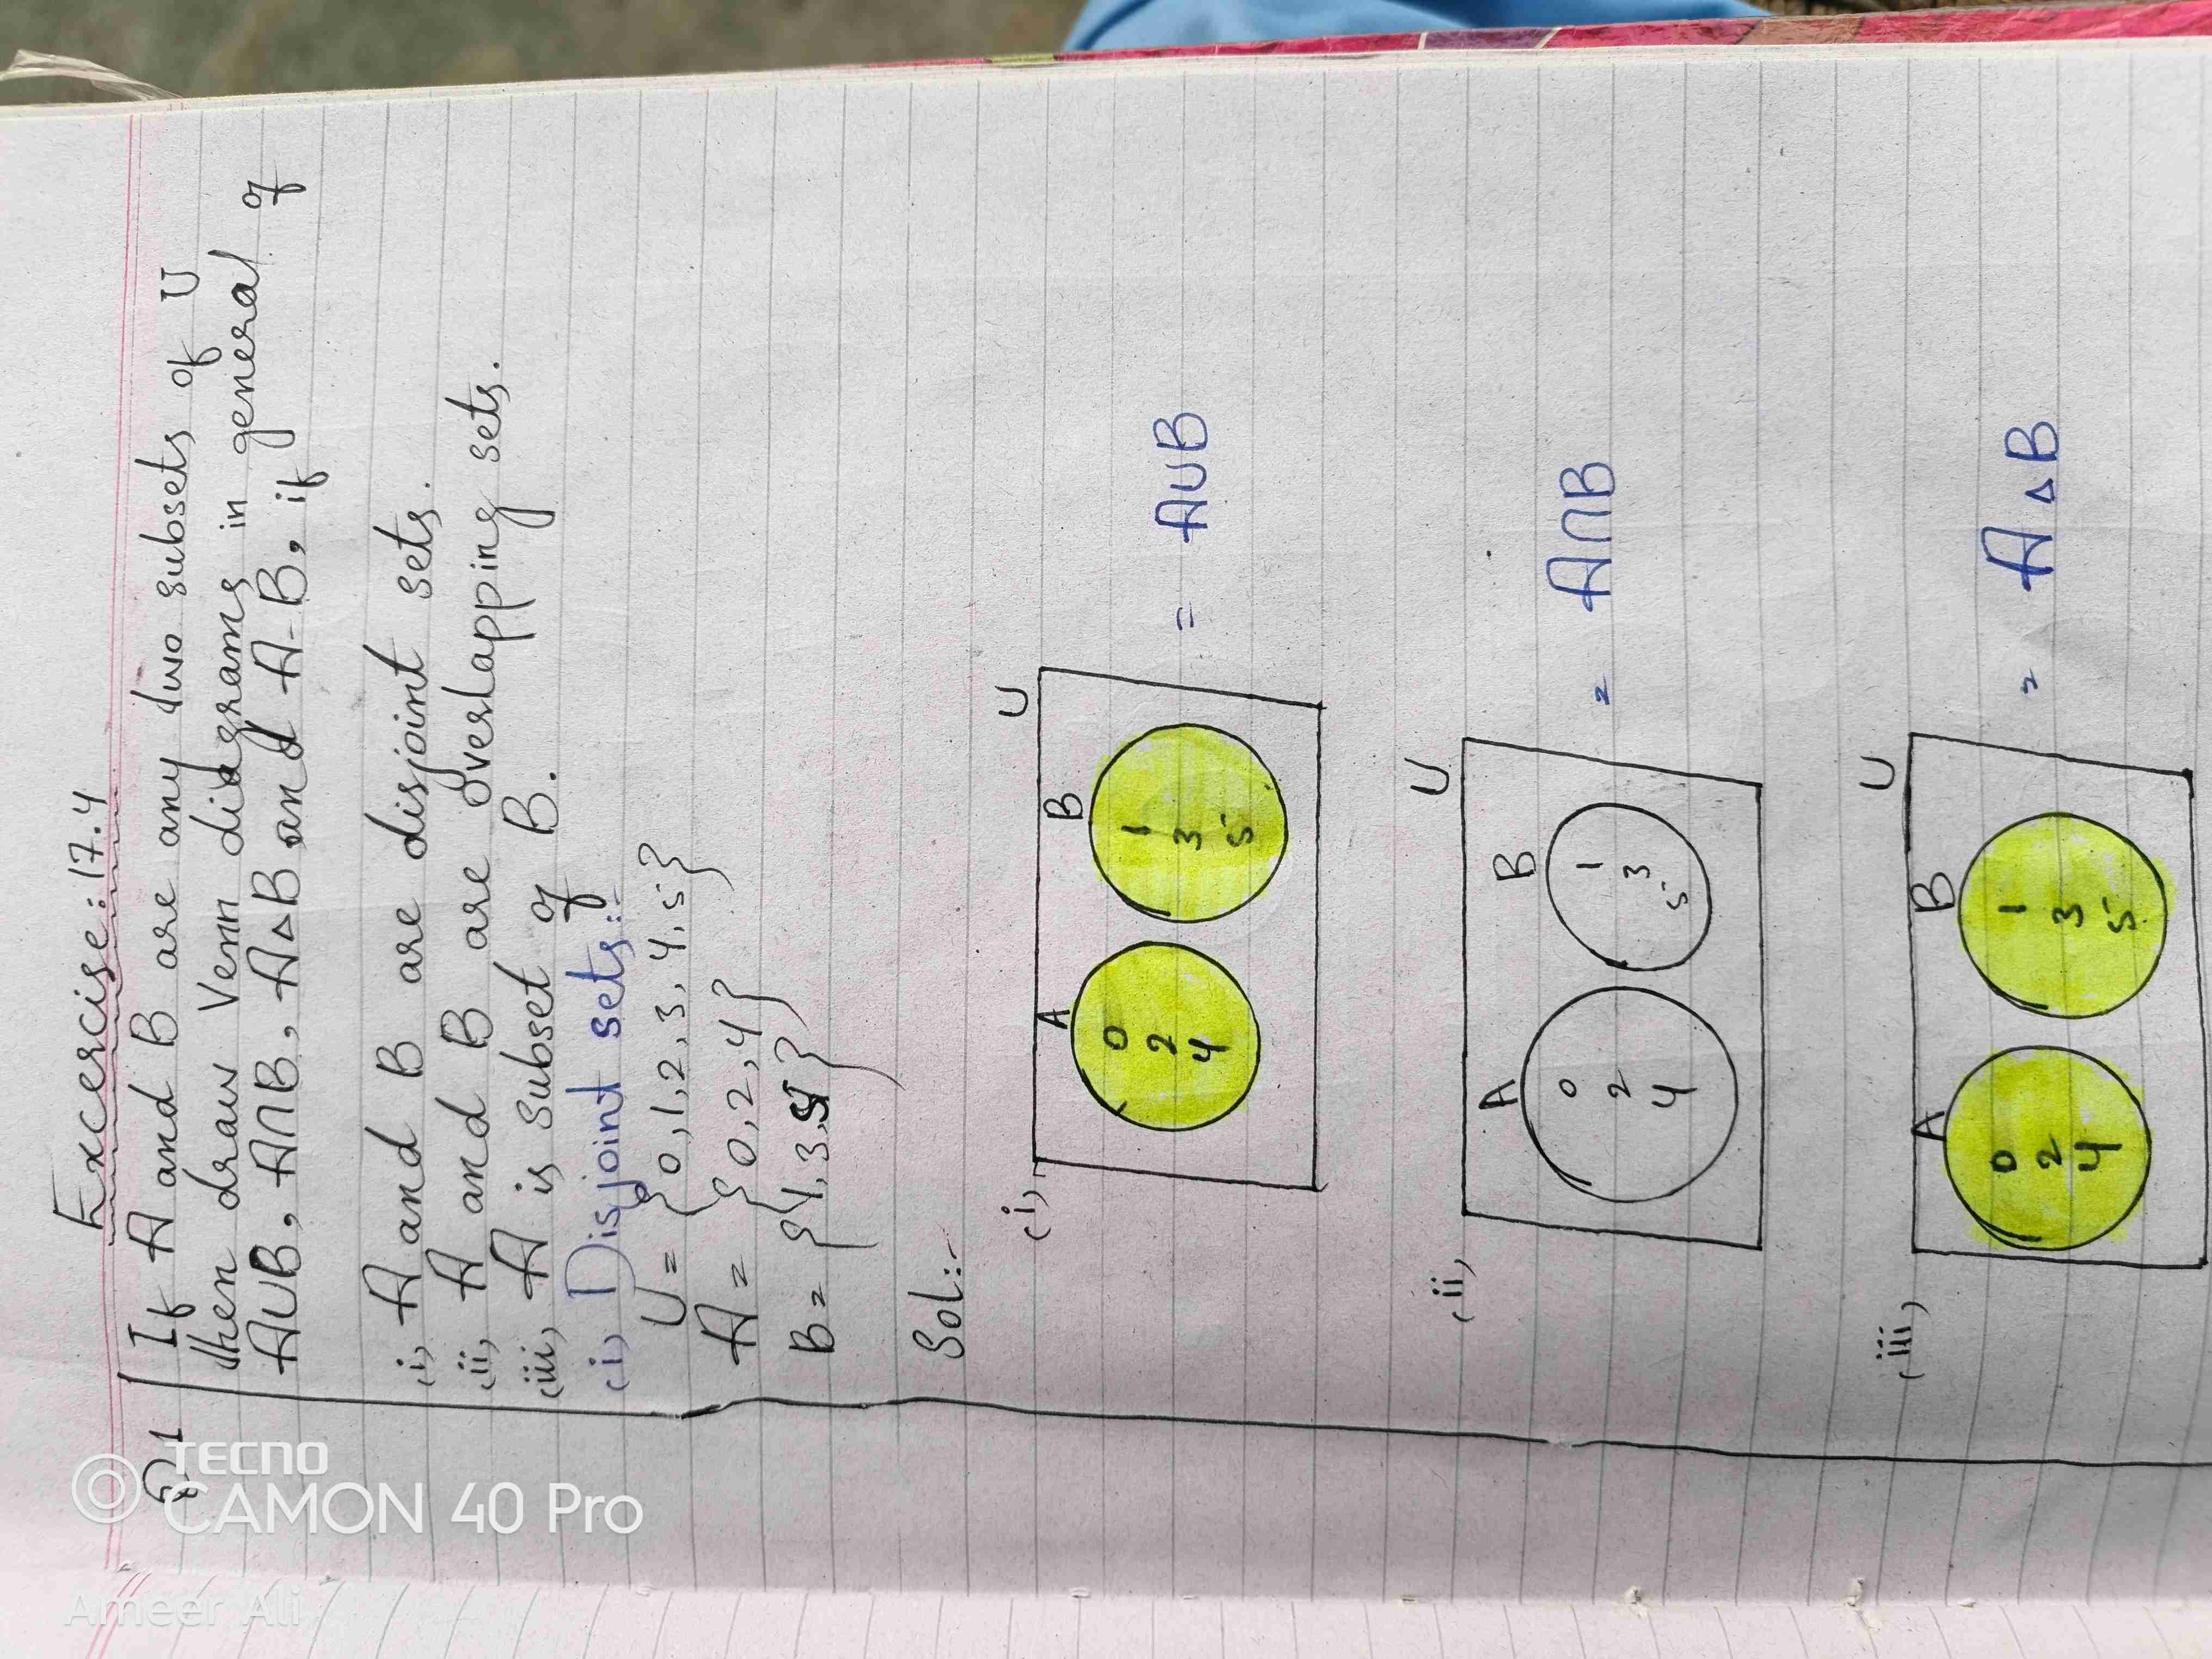 Excercise: 17.4
Q.1 If A and B are any two subsets of U
then draw Venn diagrams in general of
A∪B, A∩B, A△B and A-B, if
(i) A and B are disjoint sets.
(ii) A and B are overlapping sets.
(iii) A is subset of B.
(i) Disjoint sets:-
U = {0,1,2,3,4,5}
A = {0,2,4}
B = {1,3,5}
Sol:-
(i)
U
A B
0 1
2 3
4 5
= A∪B
(ii)
U
A B
0 1
2 3
4 5
= A∩B
(iii)
U
A B
0 1
2 3
4 5
= A△B
TECNO
CAMON 40 Pro
Ameer Ali